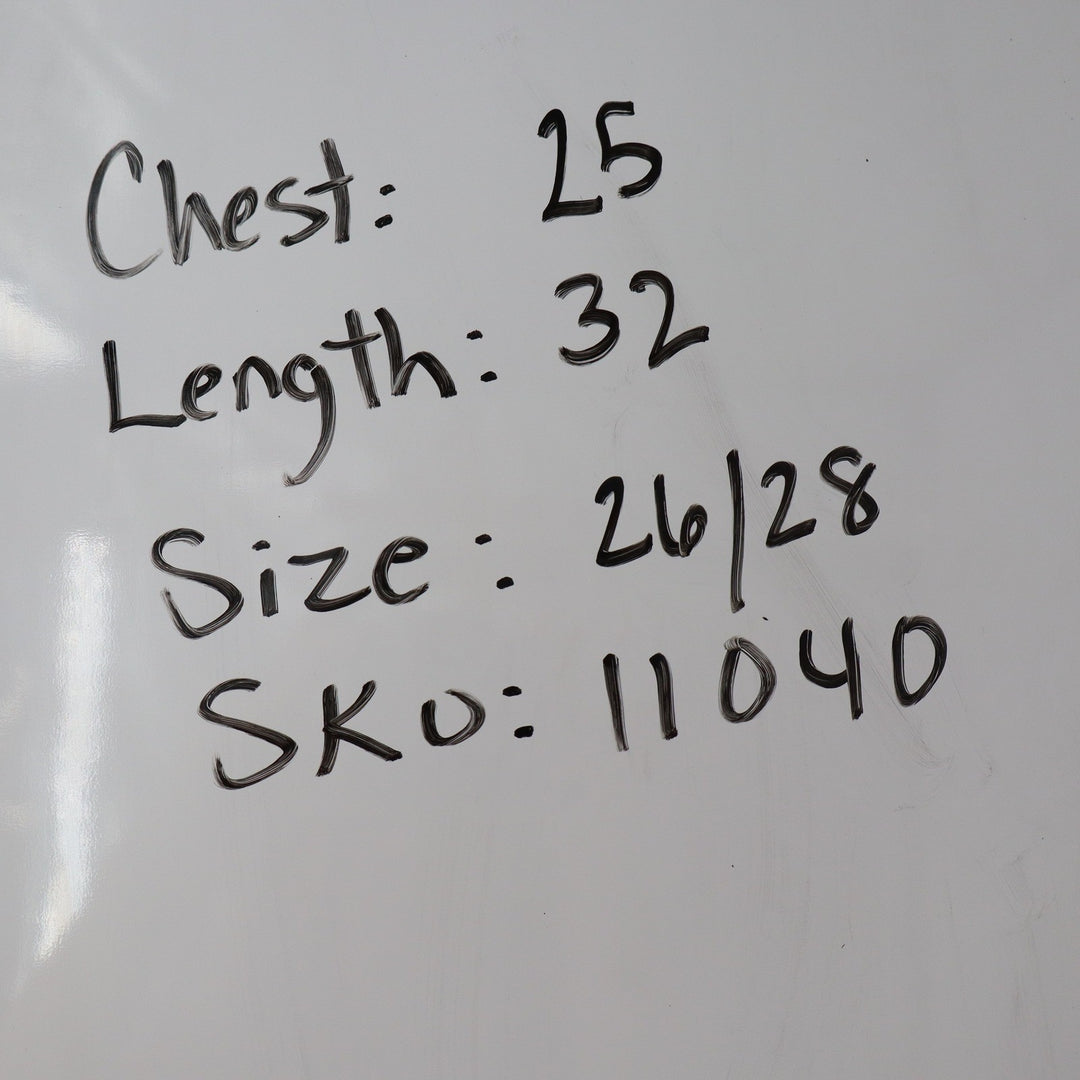 Chest: 25
Length: 32
Size: 26/28
SKU: 11040